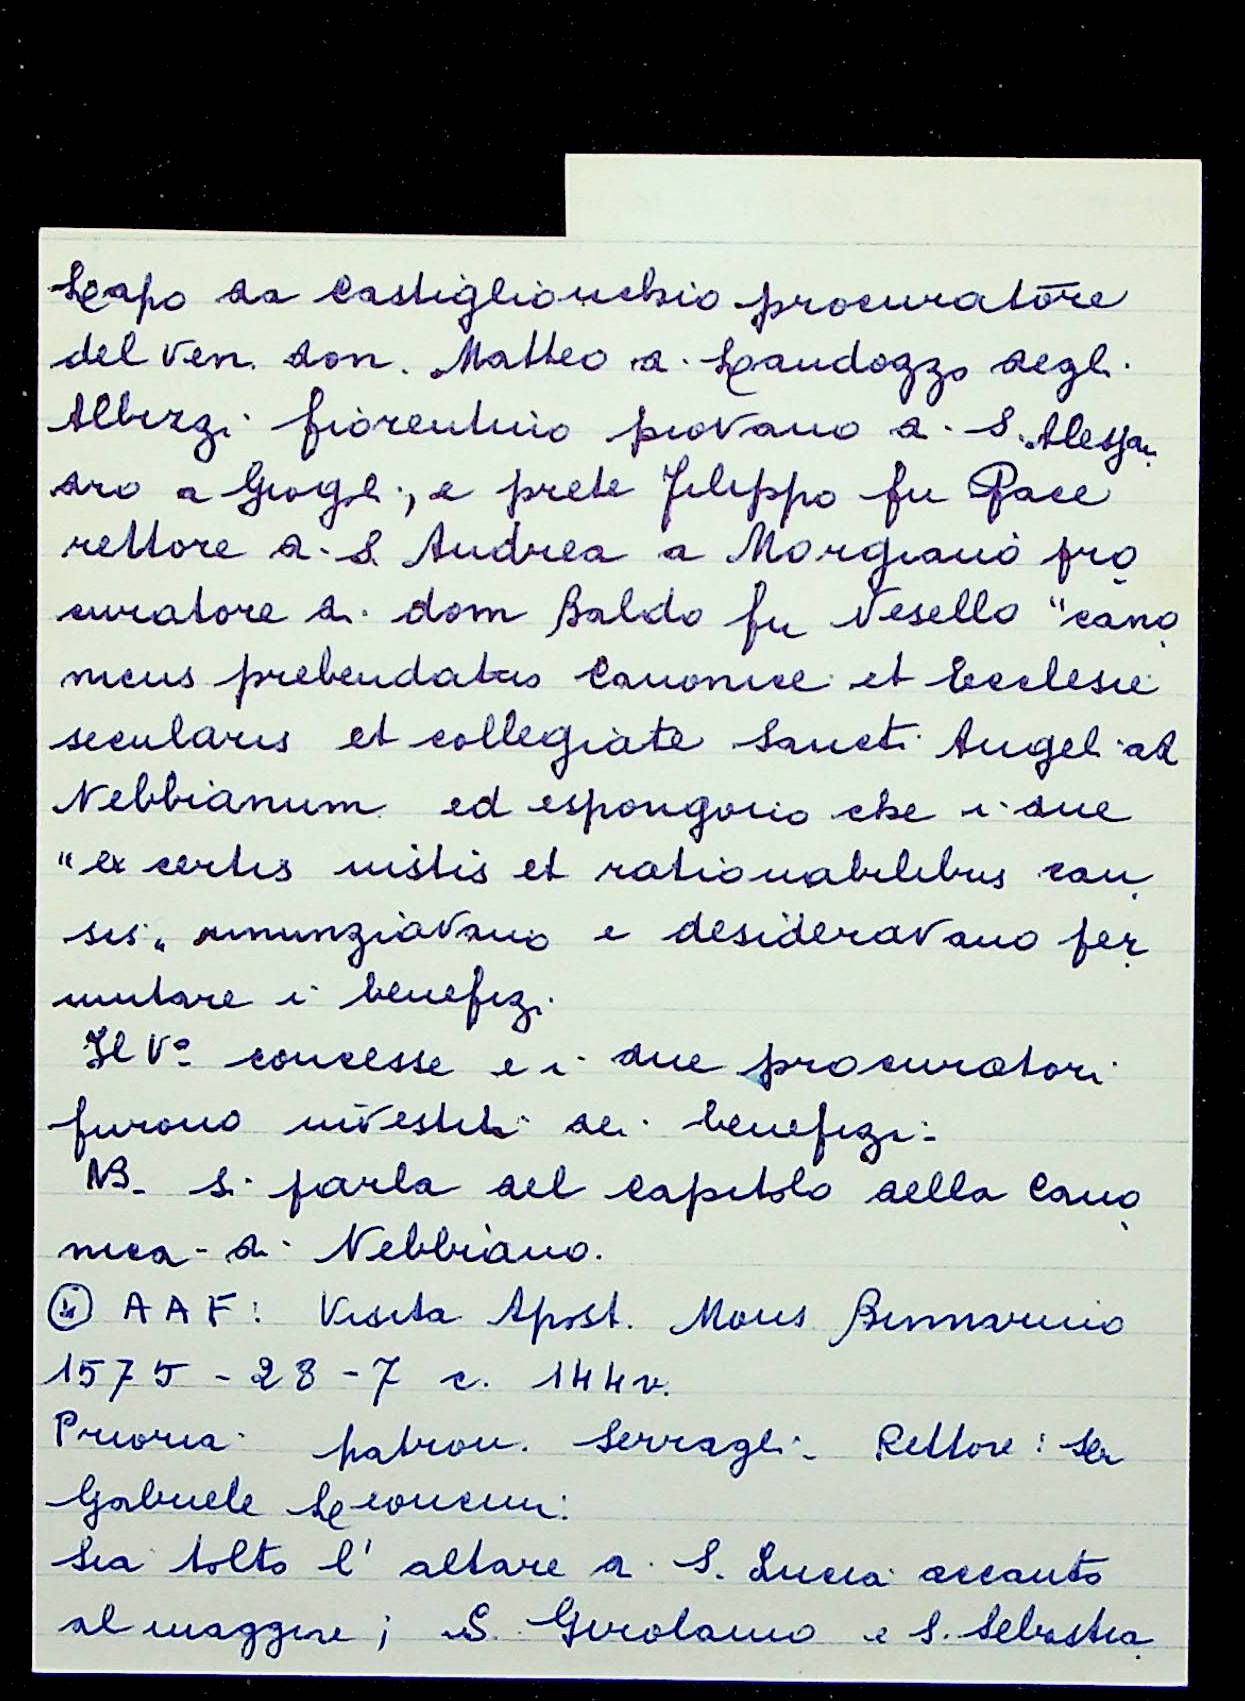 Lapo da Castiglionchio procuratore
del Ven. don. Matteo di Landozzo degli
Albizzi fiorentino piovano di S. Alessan
dro a Giogoli, e prete Filippo fu Pace
rettore di S. Andrea a Morgiano pro
curatore di dom Baldo fu Vesello "cano
nicus prebendatus Canonice et Ecclesie
secularis et collegiate Sancti Angeli ad
Nebbianum ed espongono che i due
"ex certis iustis et rationabilibus cau
sis" rinunziavano e desideravano per
mutare i benefizi
Il Vº concesse e i due procuratori
furono investiti dei benefizi.
NB. Si parla del Capitolo della Cano
nica di Nebbiano.
AAF: Visita Apost. Mons Binnarino
1575 - 28 - 7 c. 144v.
Prioria patron. Serragli. Rettore: Ser
Gabriele
Sia tolto l' altare di S. Lucia accanto
al maggiore; S. Girolamo e S. Sebastia